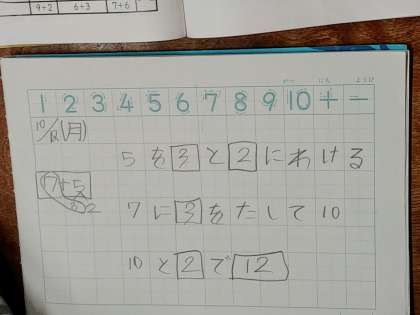 9+2 6+3 7+6
1 2 3 4 5 6 7 8 9 10 + −
10/12(月)
5を3と2にわける
7+5
3 2
7に3をたして10
10と2で12